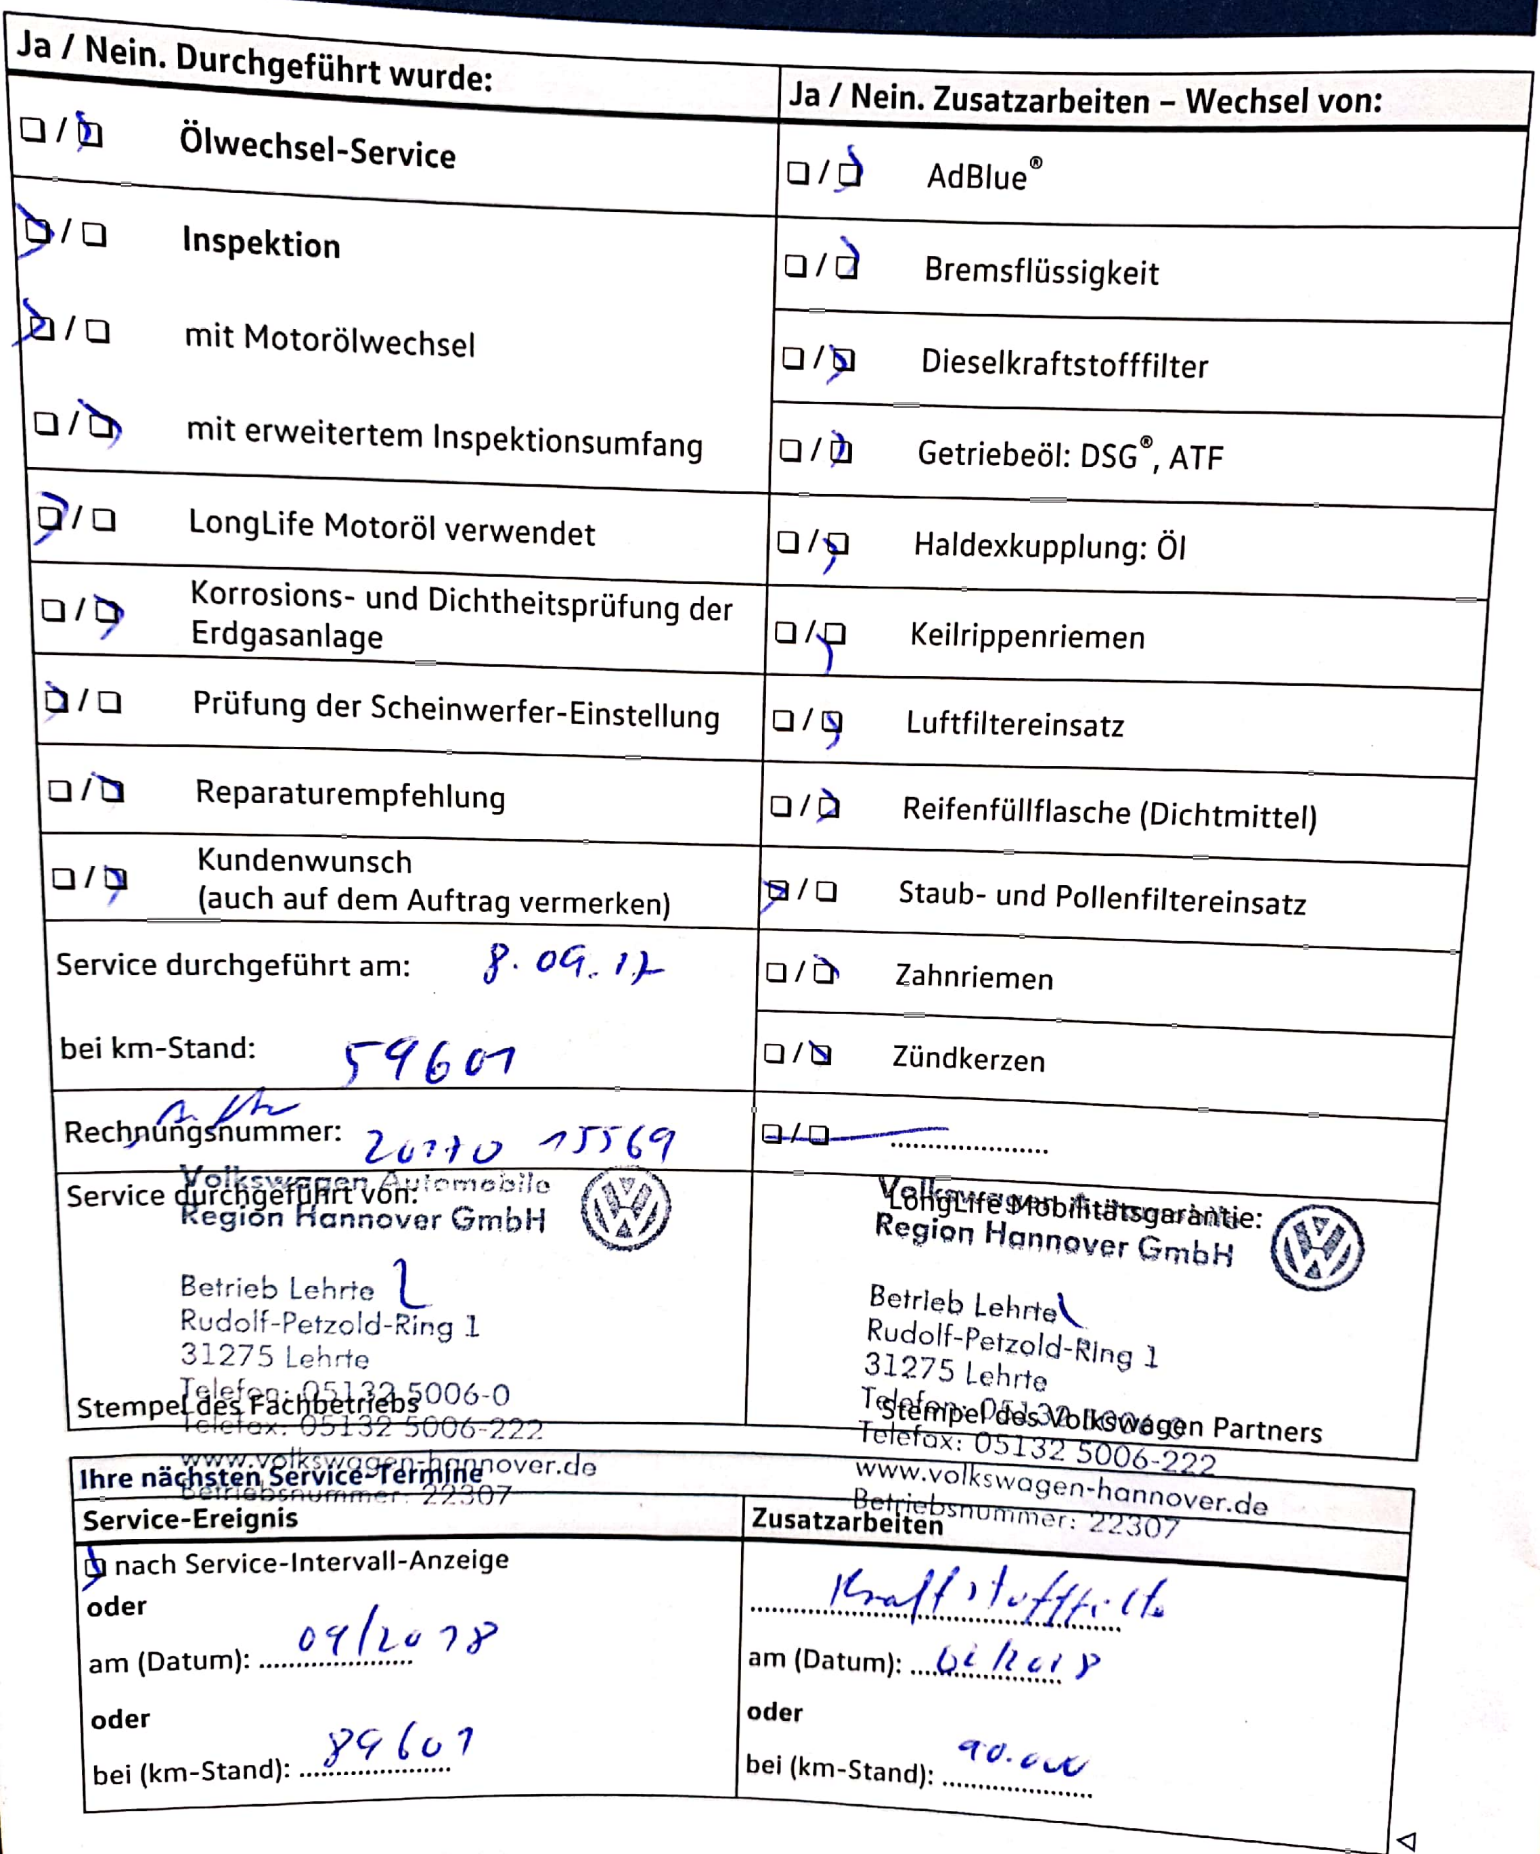 Ja / Nein. Durchgeführt wurde:
Ölwechsel-Service
Inspektion
mit Motorölwechsel
mit erweitertem Inspektionsumfang
LongLife Motoröl verwendet
Korrosions- und Dichtheitsprüfung der
Erdgasanlage
Prüfung der Scheinwerfer-Einstellung
Reparaturempfehlung
Kundenwunsch
(auch auf dem Auftrag vermerken)
Service durchgeführt am: 8.09.17
bei km-Stand: 59601
Rechnungsnummer: 15569
Service durchgeführt von:
Volkswagen Automobile
Region Hannover GmbH
Betrieb Lehrte
Rudolf-Petzold-Ring 1
31275 Lehrte
Telefon: 05132 5006-0
Stempel des Fachbetriebs
Telefax: 05132 5006-222
www.volkswagen-hannover.de
Betriebsnummer: 22307
Ja / Nein. Zusatzarbeiten – Wechsel von:
AdBlue®
Bremsflüssigkeit
Dieselkraftstofffilter
Getriebeöl: DSG®, ATF
Haldexkupplung: Öl
Keilrippenriemen
Luftfiltereinsatz
Reifenfüllflasche (Dichtmittel)
Staub- und Pollenfiltereinsatz
Zahnriemen
Zündkerzen
LongLife Mobilitätsgarantie:
Volkswagen Automobile
Region Hannover GmbH
Betrieb Lehrte
Rudolf-Petzold-Ring 1
31275 Lehrte
Telefon: 05132 5006-0
Stempel des Volkswagen Partners
Telefax: 05132 5006-222
www.volkswagen-hannover.de
Betriebsnummer: 22307
Ihre nächsten Service-Termine
Service-Ereignis
nach Service-Intervall-Anzeige
oder
am (Datum): 09/2018
oder
bei (km-Stand): 89601
Zusatzarbeiten
Kraftstofffilter
am (Datum):
oder
bei (km-Stand): 90.000